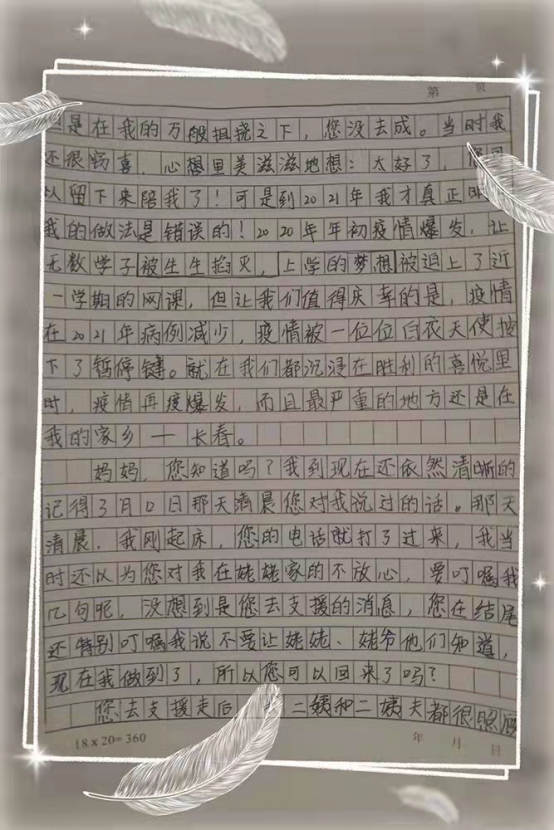 第 页
是在我的万般阻挠之下，您没去成。当时我
还很窃喜，心想里美滋滋地想：太好了，
以留下来陪我了！可是到2021年我才真正
我的做法是错误的！2020年年初疫情爆发，让
无数学子被生生掐灭，上学的梦想被迫上了近
一学期的网课，但让我们值得庆幸的是，疫情
在2021年病例减少，疫情被一位位白衣天使按
下了暂停键。就在我们都沉浸在胜利的喜悦里
时，疫情再度爆发，而且最严重的地方还是在
我的家乡——长春。
妈妈，您知道吗？我到现在还依然清晰的
记得3月 日那天清晨您对我说过的话。那天
清晨，我刚起床，您的电话就打了过来，我当
时还以为您对我在姥姥家的不放心，要叮嘱我
几句呢，没想到是您去支援的消息，您在结尾
还特别叮嘱我说不要让姥姥、姥爷他们知道，
现在我做到了，所以您可以回来了吗？
您去支援走后， 二姨和二姨夫都很照顾
18×20=360 年 月 日